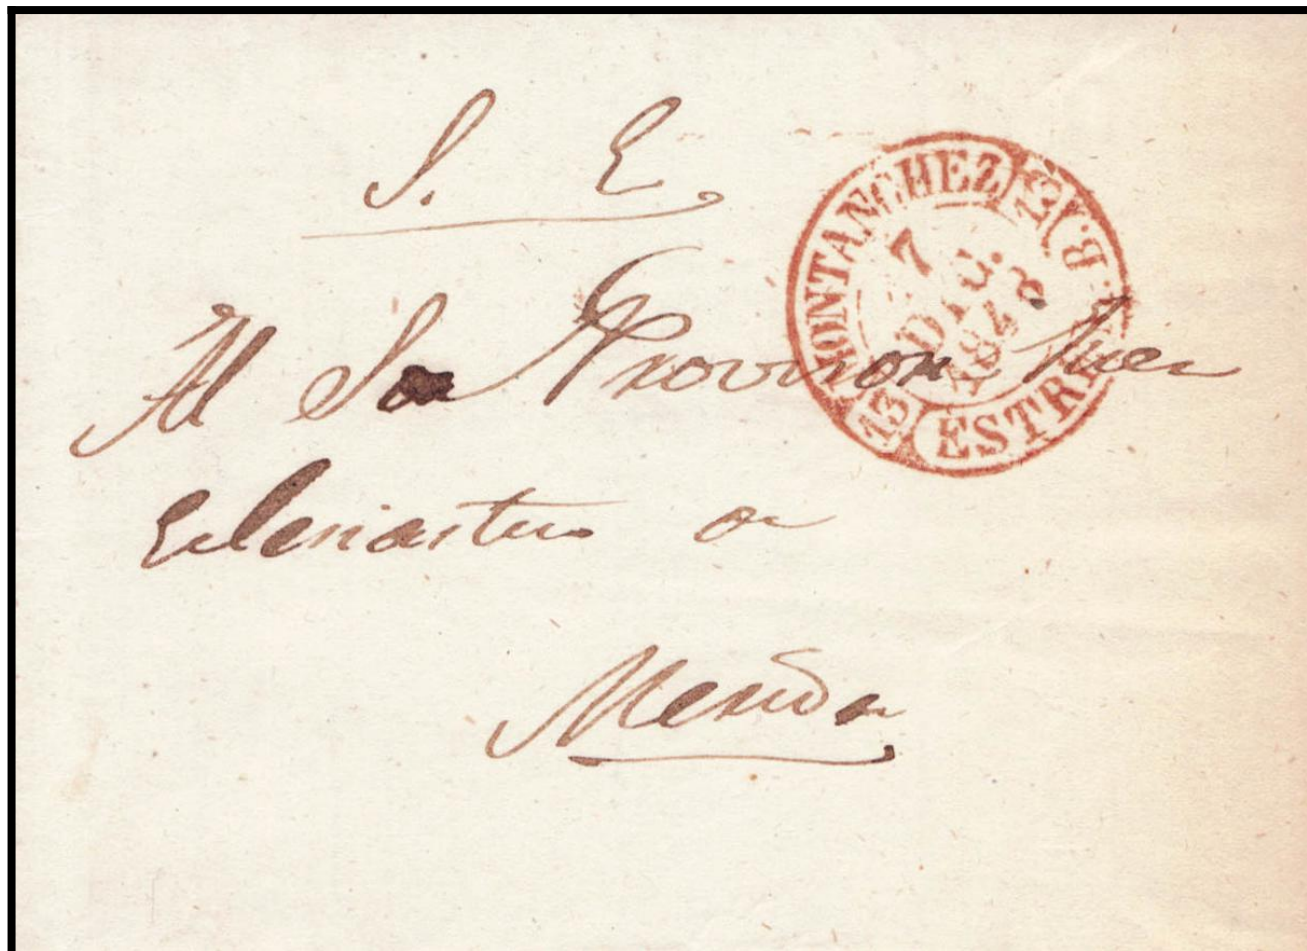 S. E.
MONTANCHEZ
7
DIC.
1848
13
ESTRE
B.
Al Sor Provisor Juez
Eclesiastico de
Merida